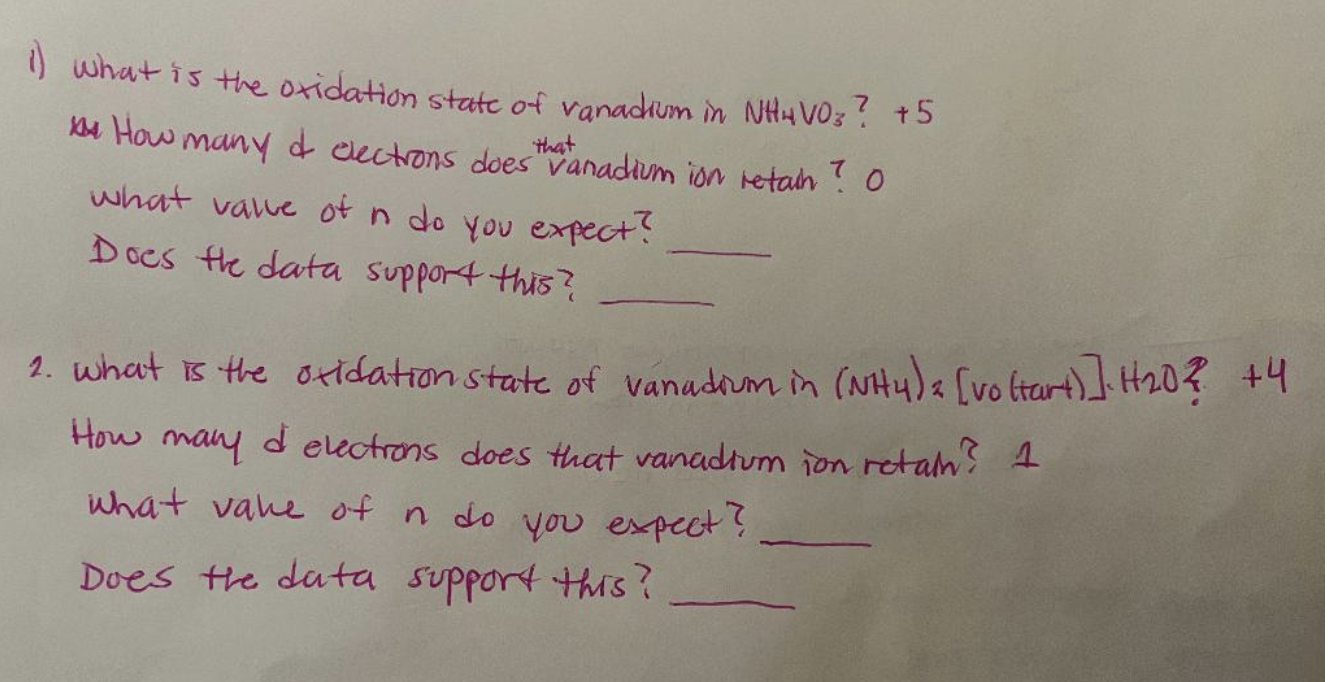 1) What is the oxidation state of vanadium in NH4VO3? +5
How many d electrons does that vanadium ion retain? 0
What value of n do you expect? ____
Does the data support this? ____
2. What is the oxidation state of vanadium in (NH4)2[VO(tart)]·H2O? +4
How many d electrons does that vanadium ion retain? 1
What value of n do you expect? ____
Does the data support this? ____